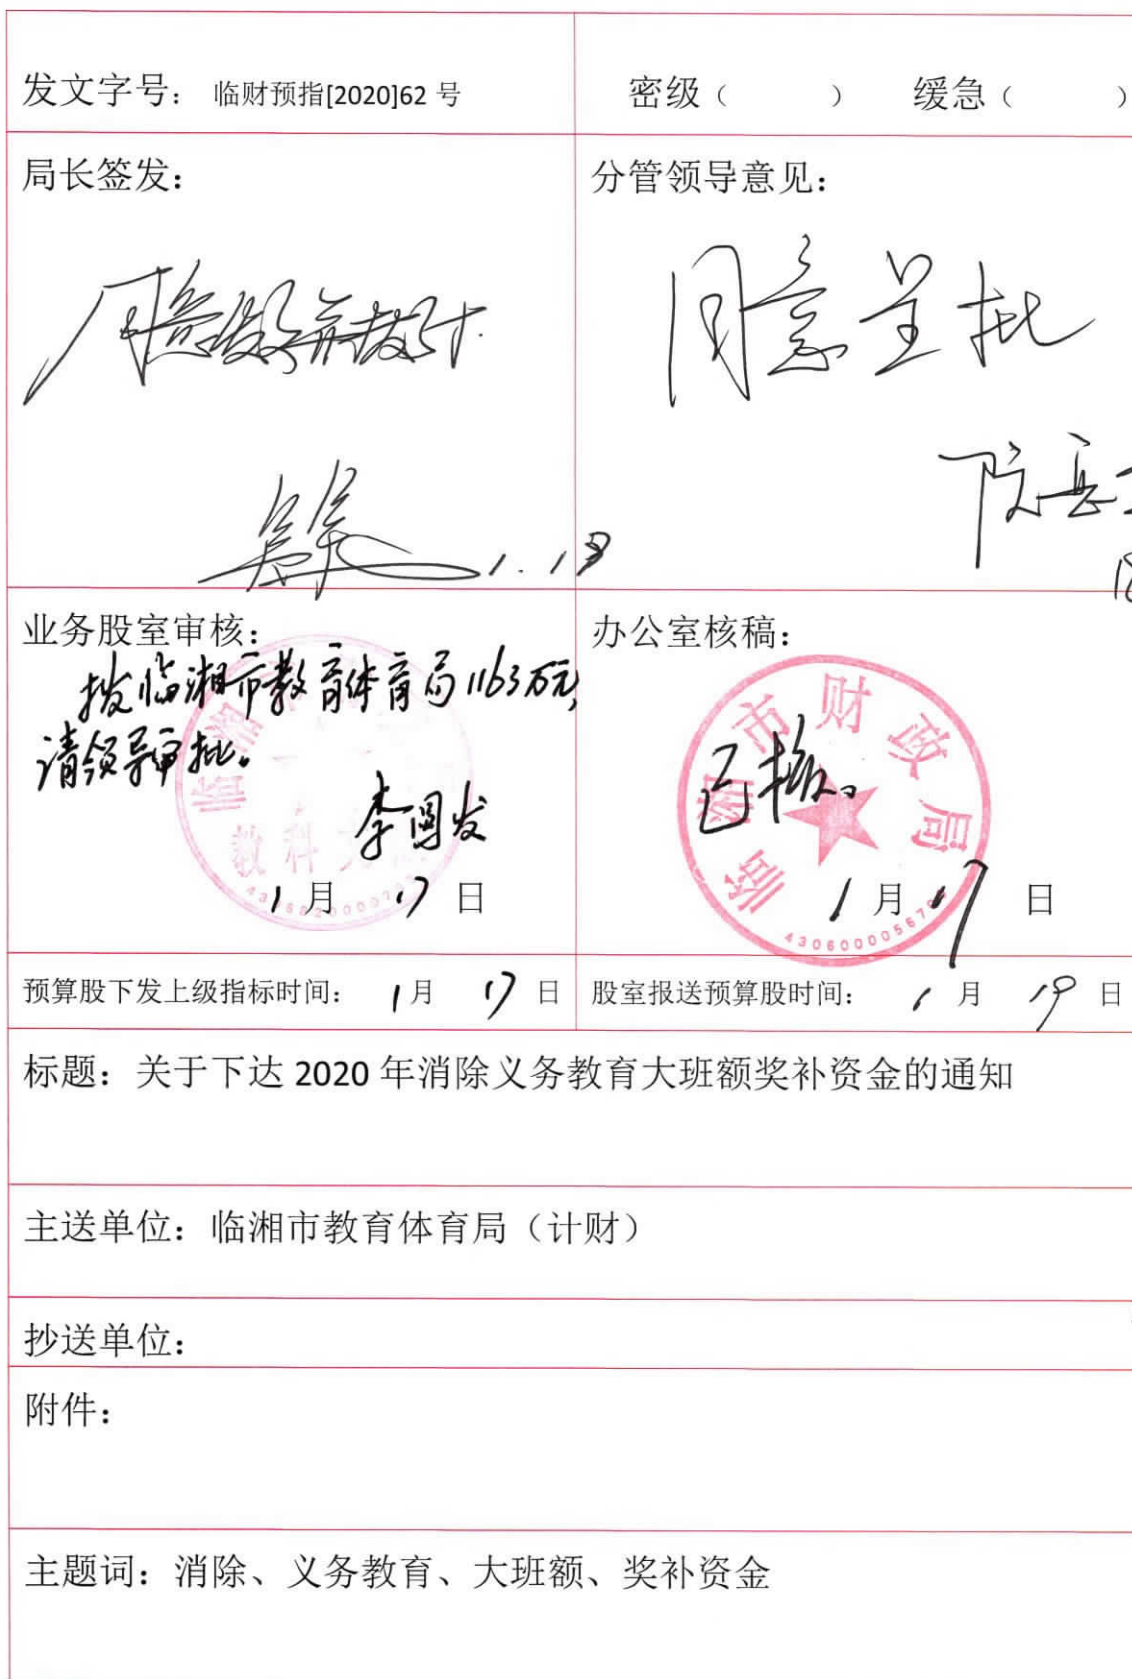 发文字号：临财预指[2020]62 号
密级（ ） 缓急（ ）
局长签发：
分管领导意见：
同意呈批
业务股室审核：
拨临湘市教育体育局1163万元，
请领导审批。
李国发
1月17日
办公室核稿：
已核。
临湘市财政局
1月17日
预算股下发上级指标时间： 1月 17日
股室报送预算股时间： 1月 19日
标题：关于下达 2020 年消除义务教育大班额奖补资金的通知
主送单位：临湘市教育体育局（计财）
抄送单位：
附件：
主题词：消除、义务教育、大班额、奖补资金